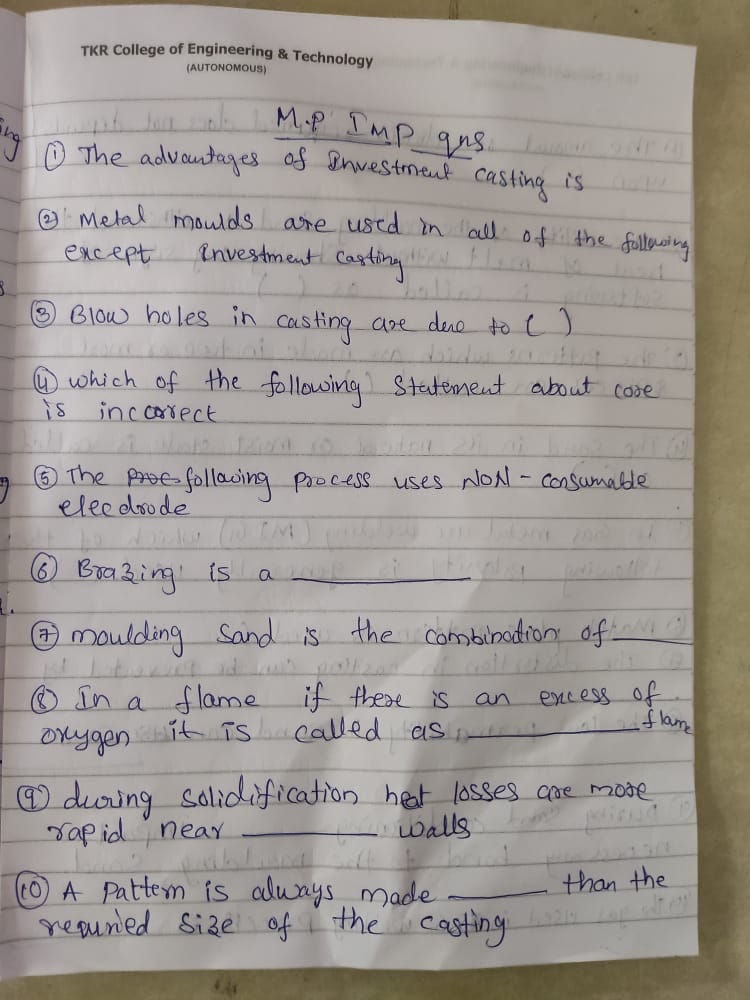 TKR College of Engineering & Technology
(AUTONOMOUS)
M.P IMP qns
① The advantages of Investment casting is
② Metal moulds are used in all of the following
except investment casting
③ Blow holes in casting are due to ( )
④ which of the following Statement about core
is incorrect
⑤ The following process uses NON - consumable
elecdrode
⑥ Brazing is a ________
⑦ moulding Sand is the combination of ____
⑧ In a flame if there is an excess of
oxygen it is called as ________ flame
⑨ during solidification heat losses are more
rapid near ________ walls
⑩ A Pattern is always made ______ than the
requried size of the casting